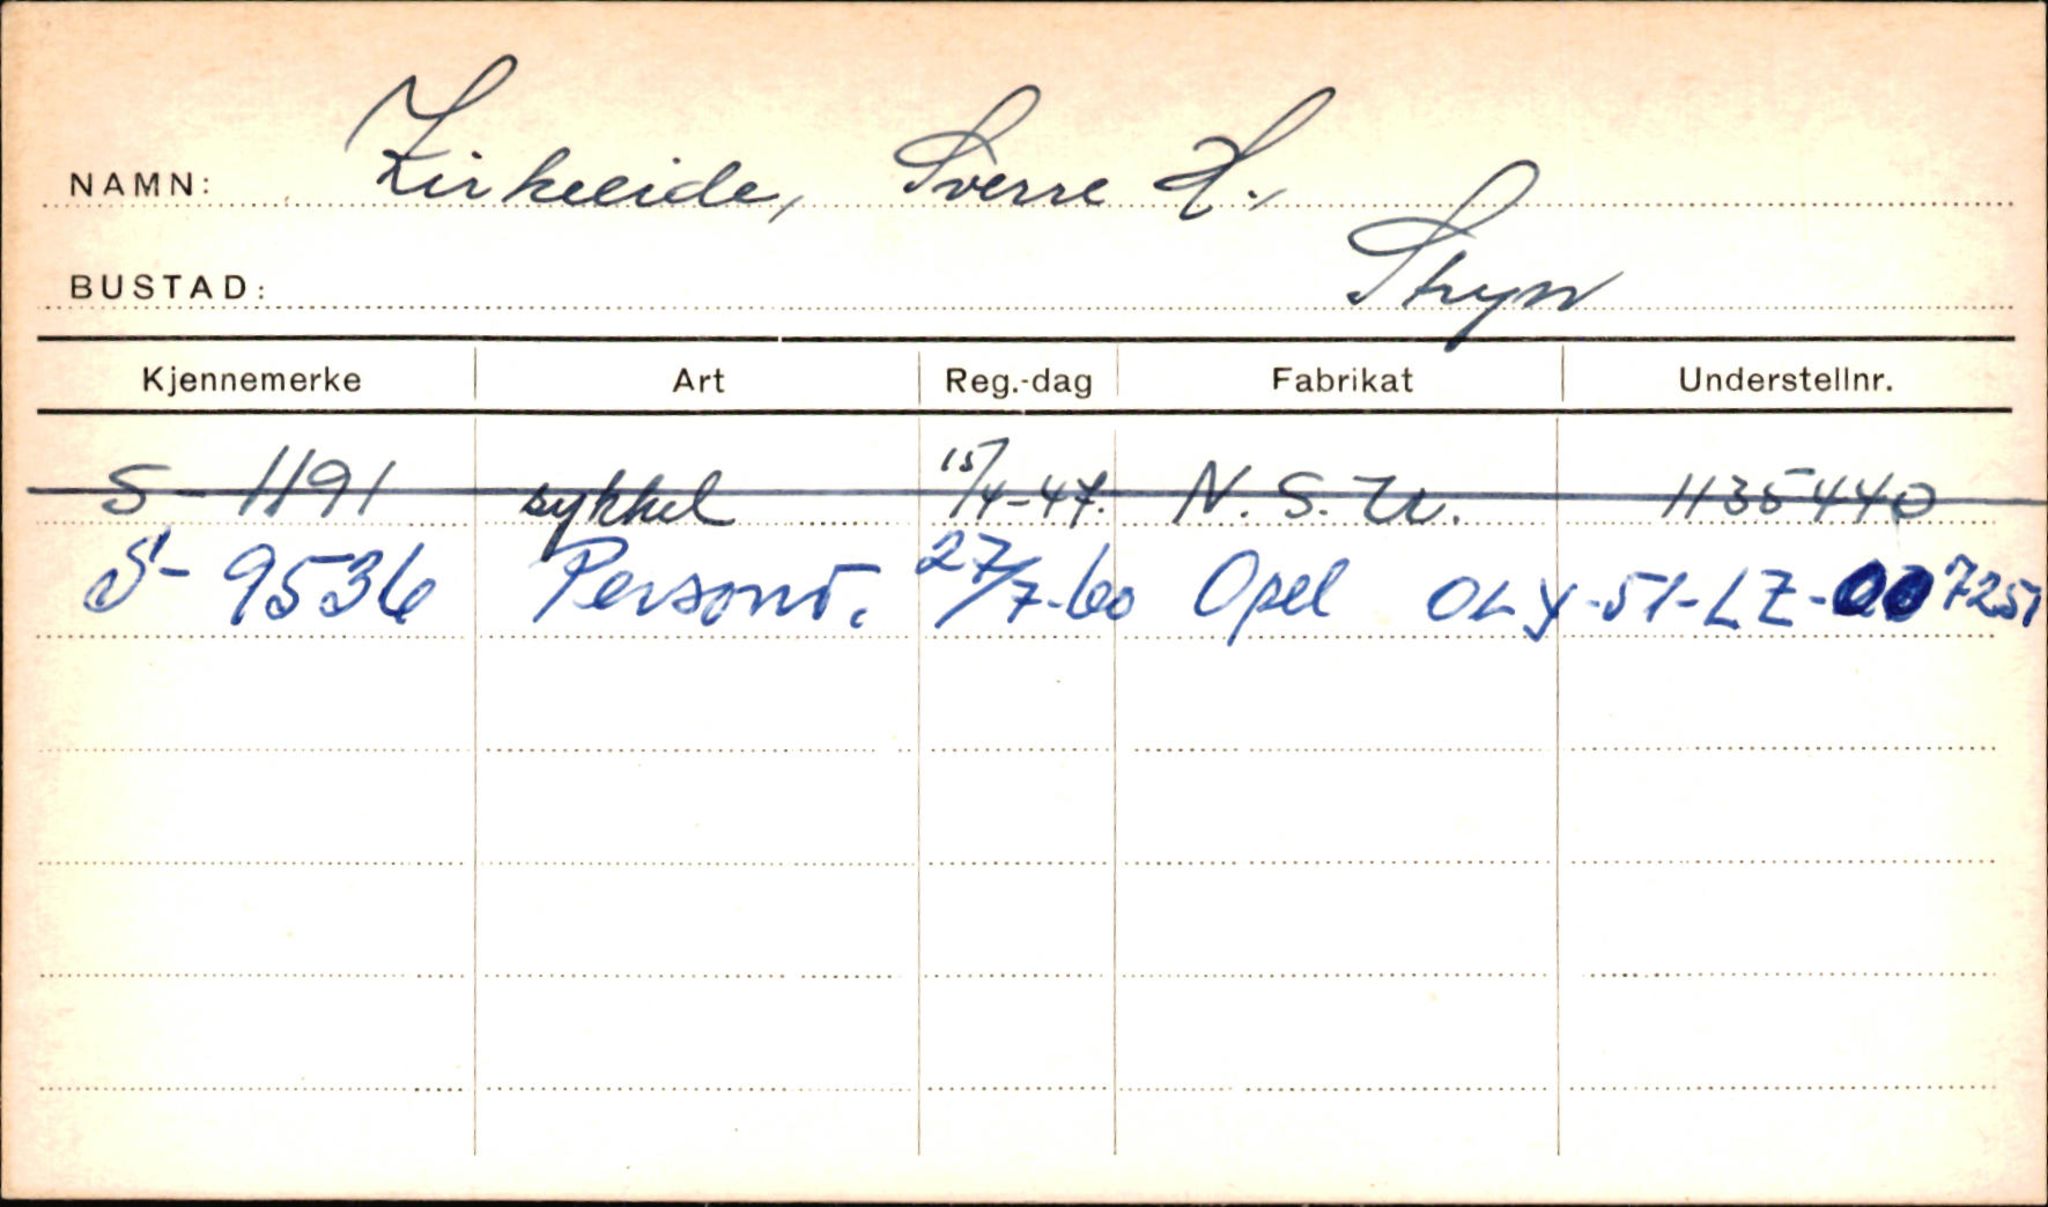 NAMN: Kirkeeide, Sverre H.,
BUSTAD: Stryn
Kjennemerke Art Reg.-dag Fabrikat Understellnr.
S-1191 sykkel 15/4-47. N.S.U. 1135440
S-9536 Personb. 27/7-60 Opel OLY-51-LZ-007251